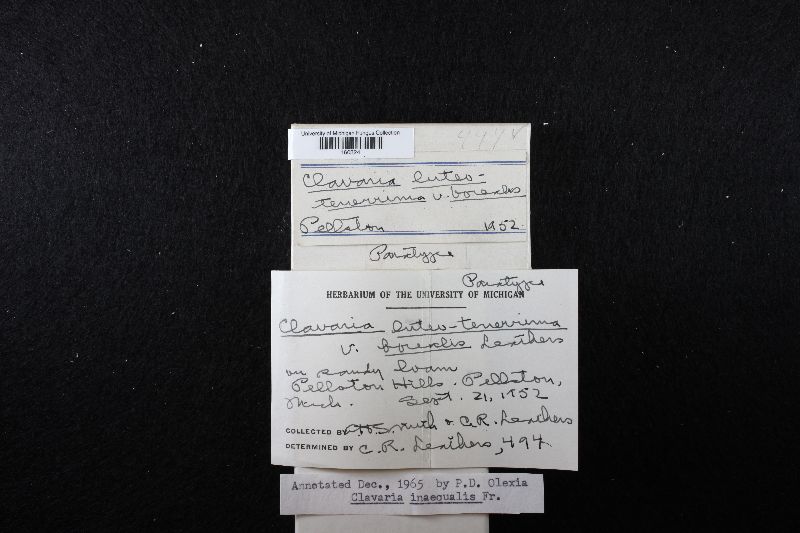 University of Michigan Fungus Collection
Clavaria luteo-
tenerrima v. borealis
Pellston 1952.
Paratype
Paratype
HERBARIUM OF THE UNIVERSITY OF MICHIGAN
Clavaria luteo-tenerrima
v. borealis Leathers
on sandy loam
Pellston Hills. Pellston,
Mich. Sept. 21, 1952
COLLECTED BY A.H. Smith & C.R. Leathers
DETERMINED BY C.R. Leathers, 494
Annotated Dec., 1965 by P.D. Olexia
Clavaria inaequalis Fr.